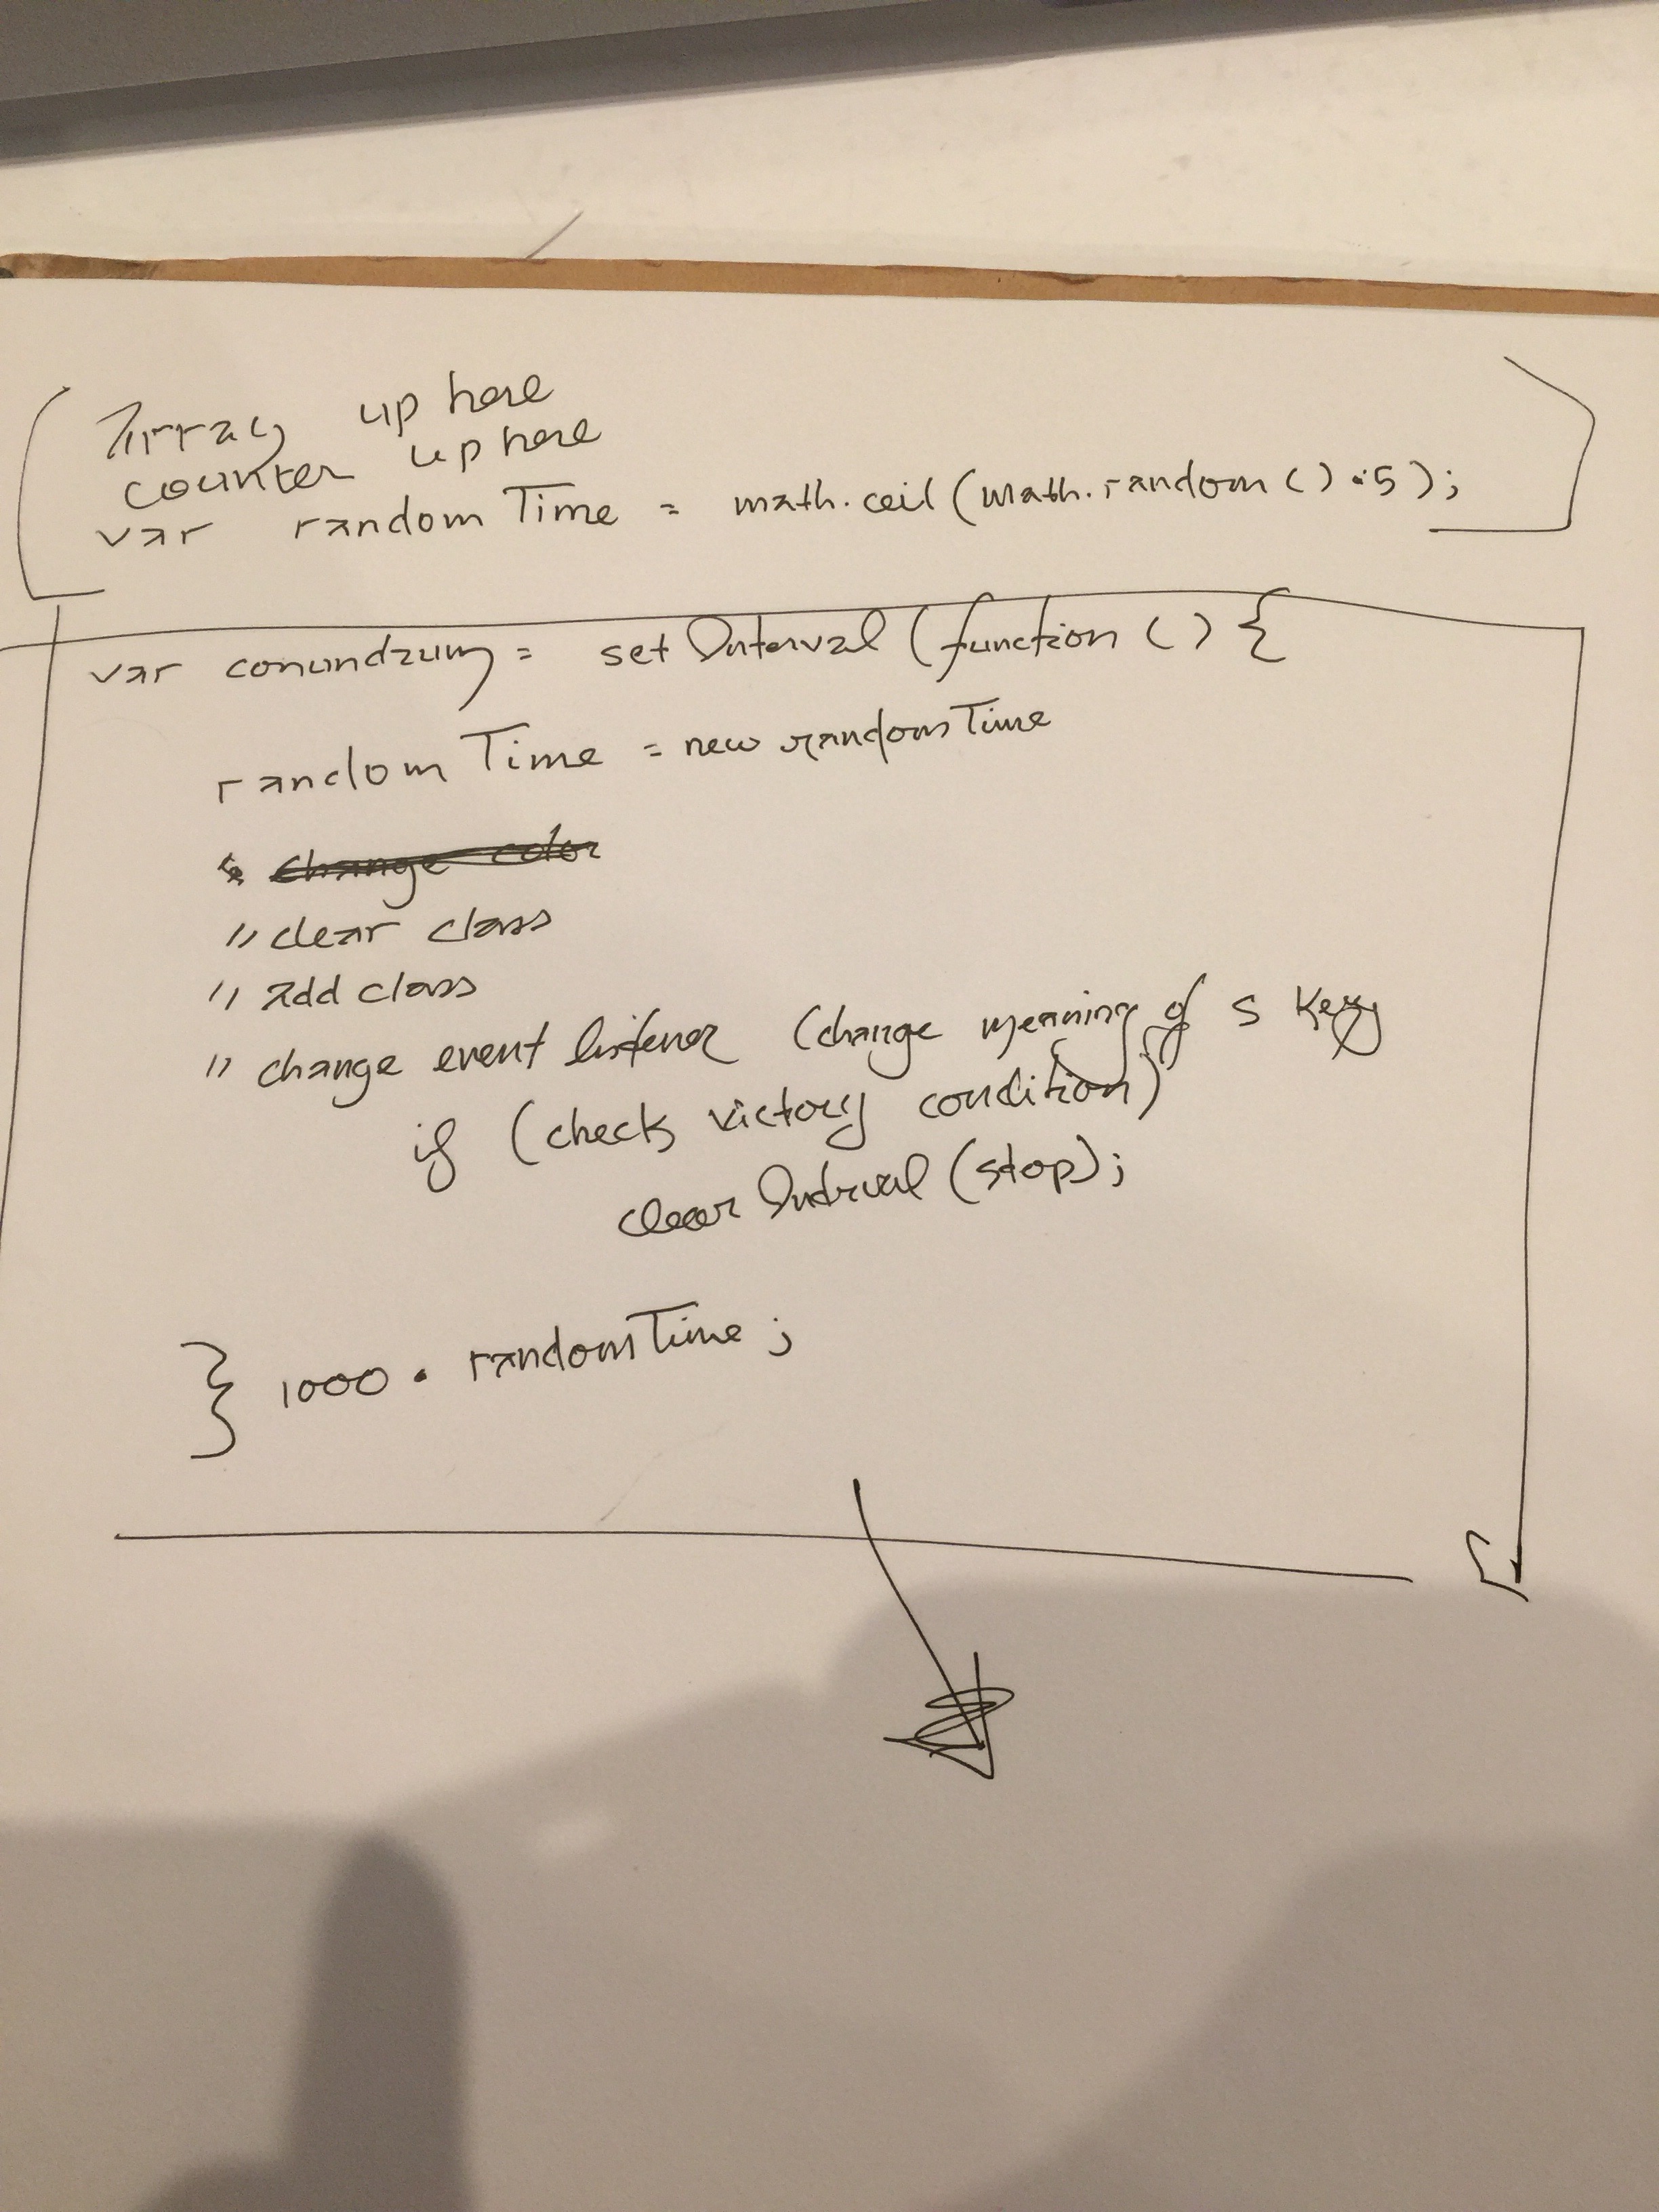 Array up here
counter up here
var randomTime = math.ceil(math.random() • 5);
var conundrum = setInterval(function () {
randomTime = new randomTime
change color
// clear class
// add class
// change event listener (change meaning of s key
if (check victory condition)
clearInterval(stop);
} 1000 • randomTime;